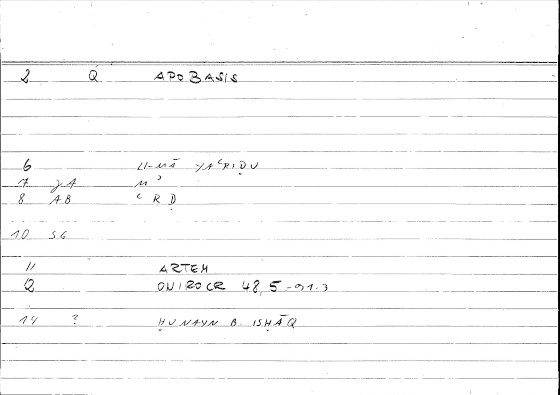 2 Q APOBASIS
6 LI-MĀ YAʿRIḌU
7 γA Mʾ
8 AB ʿRḌ
10 SG
11 ARTEM
Q ONIROCR 48,5 - 91.3
14 ? ḤUNAYN B. ISḤĀQ